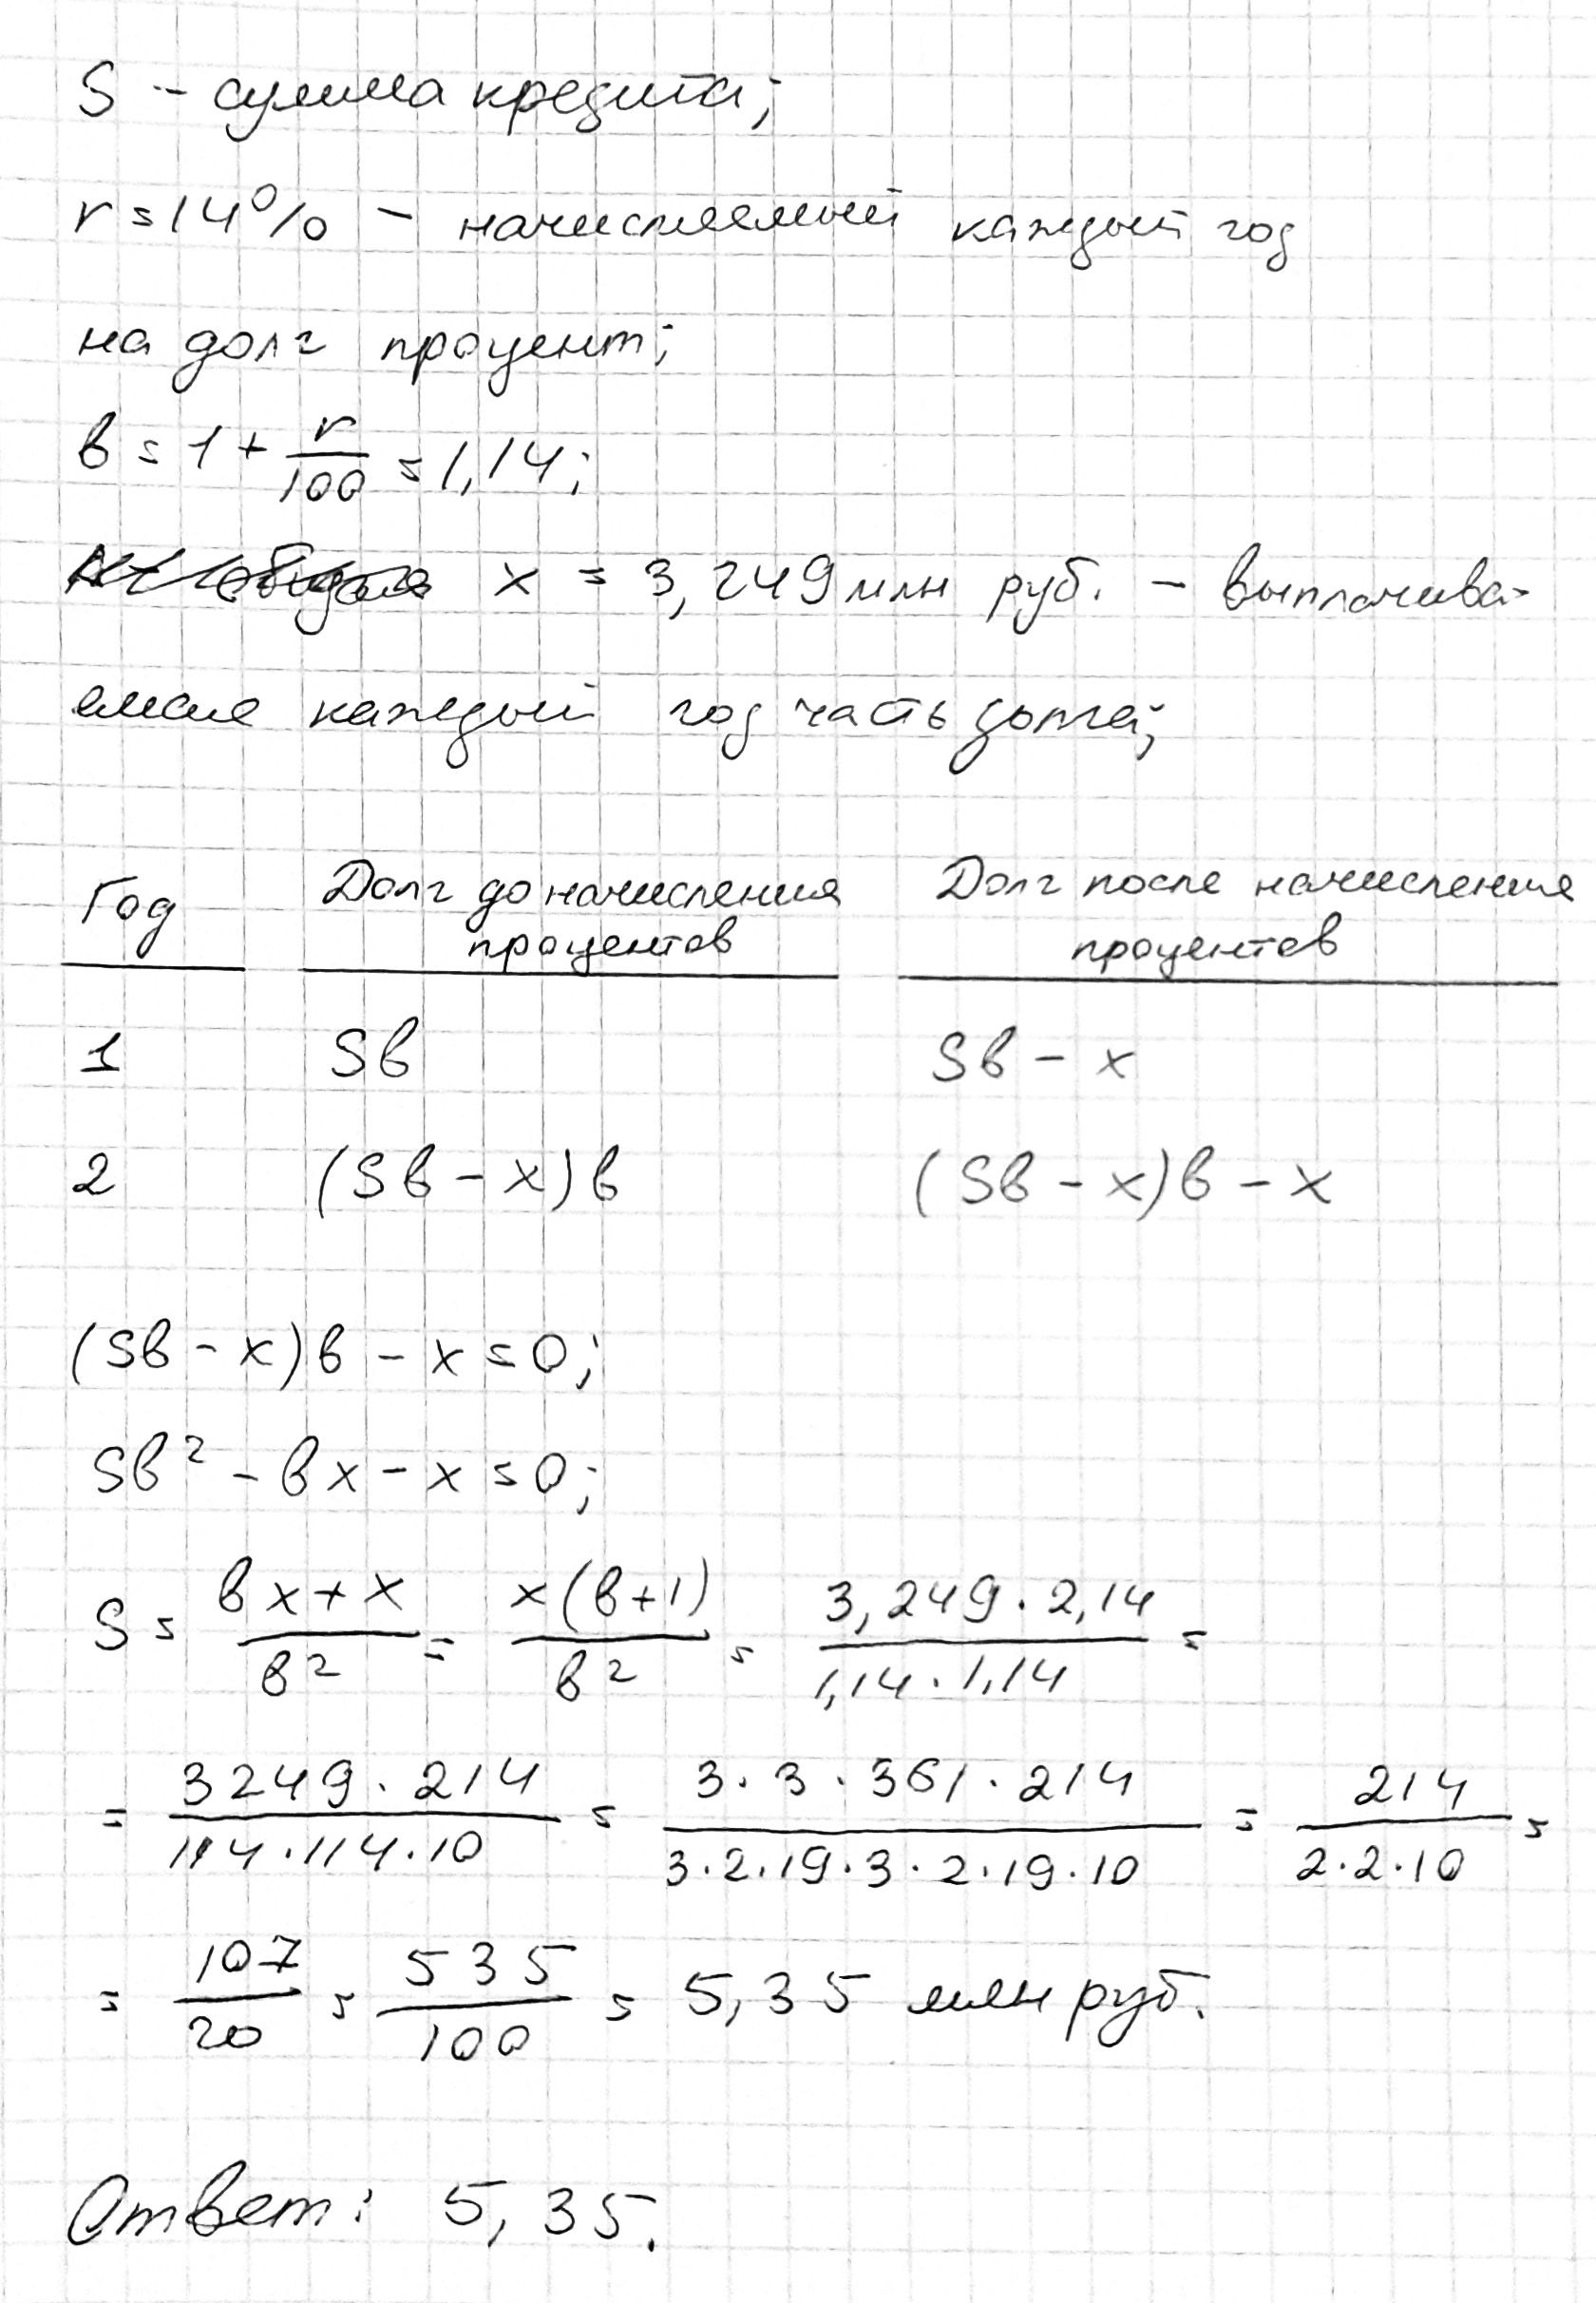 S - сумма кредита;
r = 14% - начисляемый каждый год
на долг процент;
b = 1 + r/100 = 1,14;
x = 3,249 млн руб. - выплачива-
емая каждый год часть долга;
Год Долг до начисления процентов Долг после начисления процентов
1 Sb Sb - x
2 (Sb - x)b (Sb - x)b - x
(Sb - x)b - x = 0;
Sb² - bx - x = 0;
S = (bx + x)/b² = x(b+1)/b² = 3,249 · 2,14/1,14 · 1,14 =
= 3249 · 214/114 · 114 · 10 = 3 · 3 · 361 · 214/3 · 2 · 19 · 3 · 2 · 19 · 10 = 214/2 · 2 · 10 =
= 107/20 = 535/100 = 5,35 млн руб.
Ответ: 5,35.